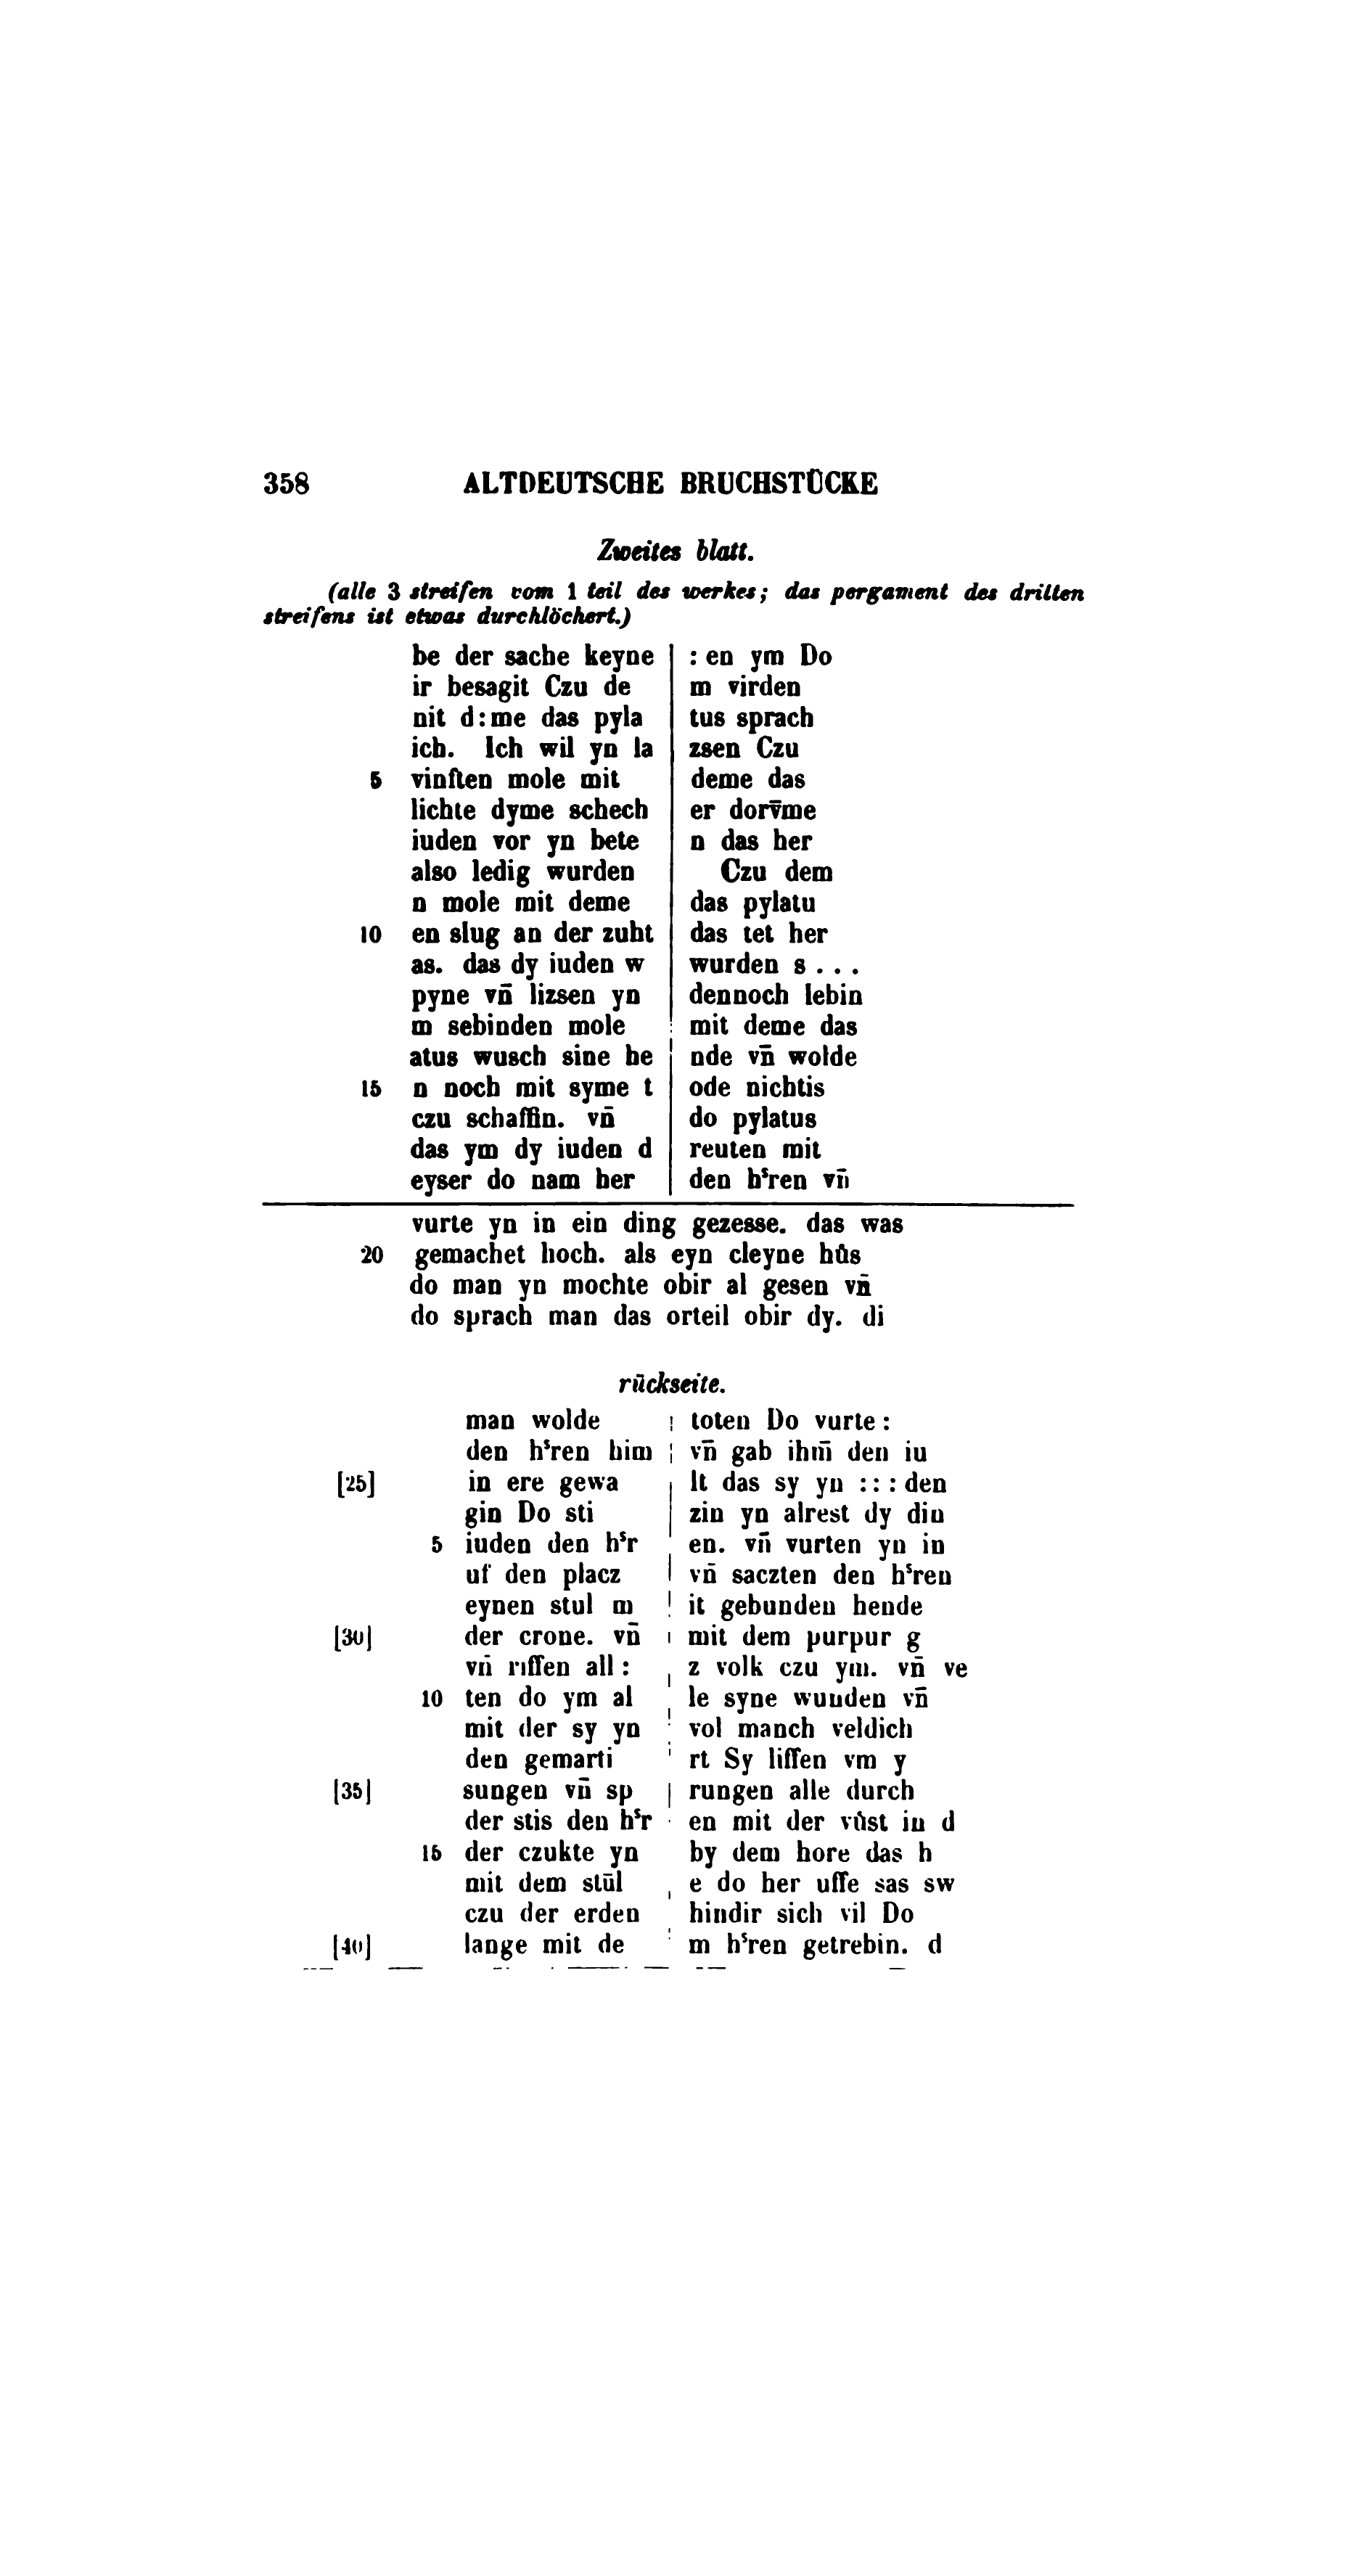 358 ALTDEUTSCHE BRUCHSTÜCKE
Zweites blatt.
(alle 3 streifen vom 1 teil des werkes; das pergament des dritten
streifens ist etwas durchlöchert.)
be der sache keyne | : en ym Do
ir besagit Czu de | m virden
nit d:me das pyla | tus sprach
ich. Ich wil yn la | zsen Czu
5 vinften mole mit | deme das
lichte dyme schech | er dorv̄me
iuden vor yn bete | n das her
also ledig wurden | Czu dem
n mole mit deme | das pylatu
10 en slug an der zuht | das tet her
as. das dy iuden w | wurden s . . .
pyne vn̄ lizsen yn | dennoch lebin
m sebinden mole | mit deme das
atus wusch sine he | nde vn̄ wolde
15 n noch mit syme t | ode nichtis
czu schaffin. vn̄ | do pylatus
das ym dy iuden d | reuten mit
eyser do nam her | den hˢren vn̄
vurte yn in ein ding gezesse. das was
20 gemachet hoch. als eyn cleyne hůs
do man yn mochte obir al gesen vn̄
do sprach man das orteil obir dy. di
rückseite.
man wolde | toten Do vurte :
den hˢren him | vn̄ gab ihm̄ den iu
[25] in ere gewa | lt das sy yn : : : den
gin Do sti | zin yn alrest dy din
5 iuden den hˢr | en. vn̄ vurten yn in
uf den placz | vn̄ saczten den hˢren
eynen stul m | it gebunden hende
[30] der crone. vn̄ | mit dem purpur g
vn̄ riffen all : | z volk czu ym. vn̄ ve
10 ten do ym al | le syne wunden vn̄
mit der sy yn | vol manch veldich
den gemarti | rt Sy liffen vm y
[35] sungen vn̄ sp | rungen alle durch
der stis den hˢr | en mit der vůst in d
15 der czukte yn | by dem hore das h
mit dem stūl | e do her uffe sas sw
czu der erden | hindir sich vil Do
[40] lange mit de | m hˢren getrebin. d